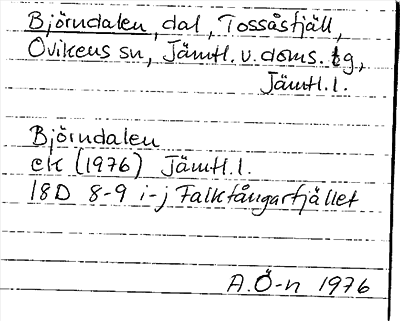 Björndalen, dal, Tossåsfjäll,
Ovikens sn, Jämtl. v. doms. tg,
Jämtl. l.
Björndalen
ek (1976) Jämtl. l.
18D 8-9 i-j Falkfångarfjället
A. Ö-n 1976